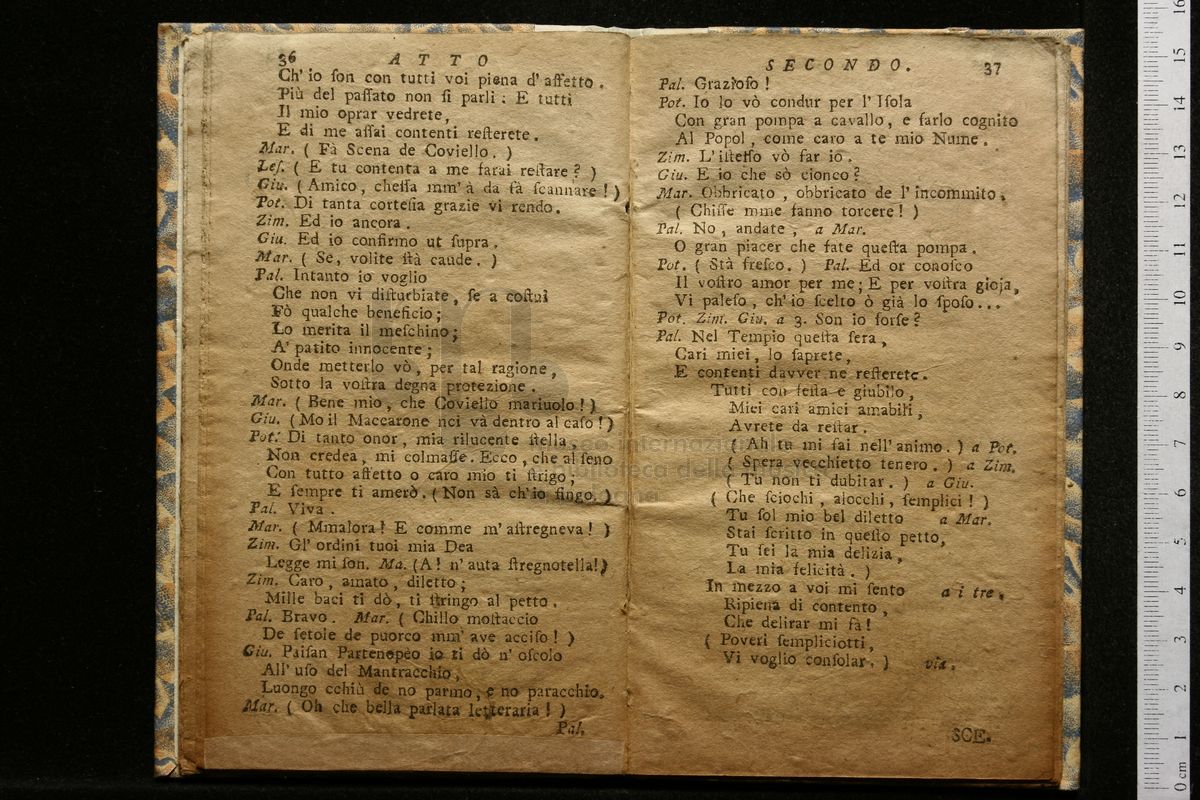 36 ATTO
Ch' io ſon con tutti voi piena d' affetto.
Più del paſſato non ſi parli: E tutti
Il mio oprar vedrete,
E di me aſſai contenti reſterete.
Mar. ( Fà Scena de Coviello. )
Leſ. ( E tu contenta a me farai reſtare? )
Giu. ( Amico, cheſſa mm' à da fà ſcannare! )
Pot. Di tanta corteſia grazie vi rendo.
Zim. Ed io ancora.
Giu. Ed io confirmo ut ſupra.
Mar. ( Se, volite ſtà caude. )
Pal. Intanto io voglio
Che non vi diſturbiate, ſe a coſtui
Fò qualche beneficio;
Lo merita il meſchino;
A' patito innocente;
Onde metterlo vò, per tal ragione,
Sotto la voſtra degna protezione.
Mar. ( Bene mio, che Coviello mariuolo! )
Giu. ( Mo il Maccarone nci và dentro al caſo! )
Pot. Di tanto onor, mia rilucente ſtella,
Non credea, mi colmaſſe. Ecco, che al ſeno
Con tutto affetto o caro mio ti ſtrigo;
E ſempre ti amerò. ( Non sà ch'io fingo. )
Pal. Viva.
Mar. ( Mmalora! E comme m' aſtregneva! )
Zim. Gl' ordini tuoi mia Dea
Legge mi ſon. Ma. (A! n' auta ſtregnotella!)
Zim. Caro, amato, diletto;
Mille baci ti dò, ti ſtringo al petto.
Pal. Bravo. Mar. ( Chillo moſtaccio
De ſetole de puorco mm' ave acciſo! )
Giu. Paiſan Partenopèo io ti dò n' oſcolo
All' uſo del Mantracchio,
Luongo cchiù de no parmo, e no paracchio.
Mar. ( Oh che bella parlata letteraria! )
Pal.
SECONDO. 37
Pal. Grazioſo!
Pot. Io lo vò condur per l' Iſola
Con gran pompa a cavallo, e farlo cognito
Al Popol, come caro a te mio Nume.
Zim. L' iſteſſo vò far io.
Giu. E io che sò cionco?
Mar. Obbricato, obbricato de l' incommito.
( Chiſſe mme fanno torcere! )
Pal. No, andate, a Mar.
O gran piacer che fate queſta pompa.
Pot. ( Stà freſco. ) Pal. Ed or conoſco
Il voſtro amor per me; E per voſtra gioja,
Vi paleſo, ch' io ſcelto ò già lo ſpoſo...
Pot. Zim. Giu. a 3. Son io forſe?
Pal. Nel Tempio queſta ſera,
Cari miei, lo ſaprete,
E contenti davver ne reſterete.
Tutti con feſta e giubilo,
Miei cari amici amabili,
Avrete da reſtar.
( Ah tu mi ſai nell' animo. ) a Pot.
( Spera vecchietto tenero. ) a Zim.
( Tu non ti dubitar. ) a Giu.
( Che ſciochi, alocchi, ſemplici! )
Tu ſol mio bel diletto a Mar.
Stai ſcritto in queſto petto,
Tu ſei la mia delizia,
La mia felicità. )
In mezzo a voi mi ſento a i tre.
Ripiena di contento,
Che delirar mi fà!
( Poveri ſempliciotti,
Vi voglio conſolar. ) via.
SCE.